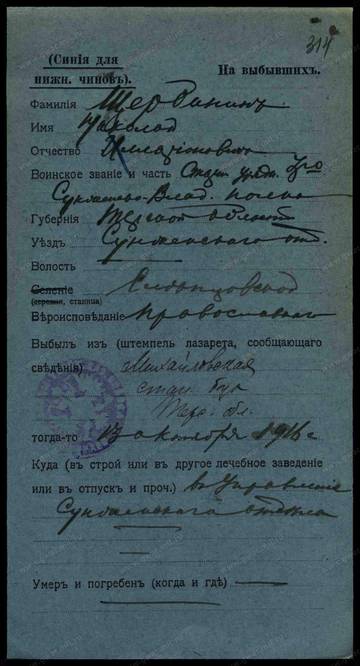 314
(Синія для
нижн. чиновъ).
На выбывшихъ.
Фамилія Щербининъ
Имя Николай
Отчество
Воинское званіе и часть Старш. уряд. 3го
Сунженско-Влад. полка
Губернія Терской области
Уѣздъ Сунженскаго отд.
Волость
Селеніе Слѣпцовской
(деревня, станица)
Вѣроисповѣданіе православнаго
Выбылъ изъ (штемпель лазарета, сообщающаго
свѣдѣнія) Михайловская
стан.
Тер. обл.
тогда-то 13 октября 1916 г
Куда (въ строй или въ другое лечебное заведеніе
или въ отпускъ и проч.) въ Управленіе
Сунженскаго отдѣла
Умеръ и погребенъ (когда и гдѣ)